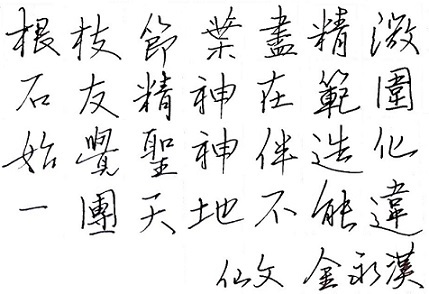 根枝節葉盡精微
石友精神在範圍
始覺聖神伴造化
一團天地不能違
仙文 金永漢